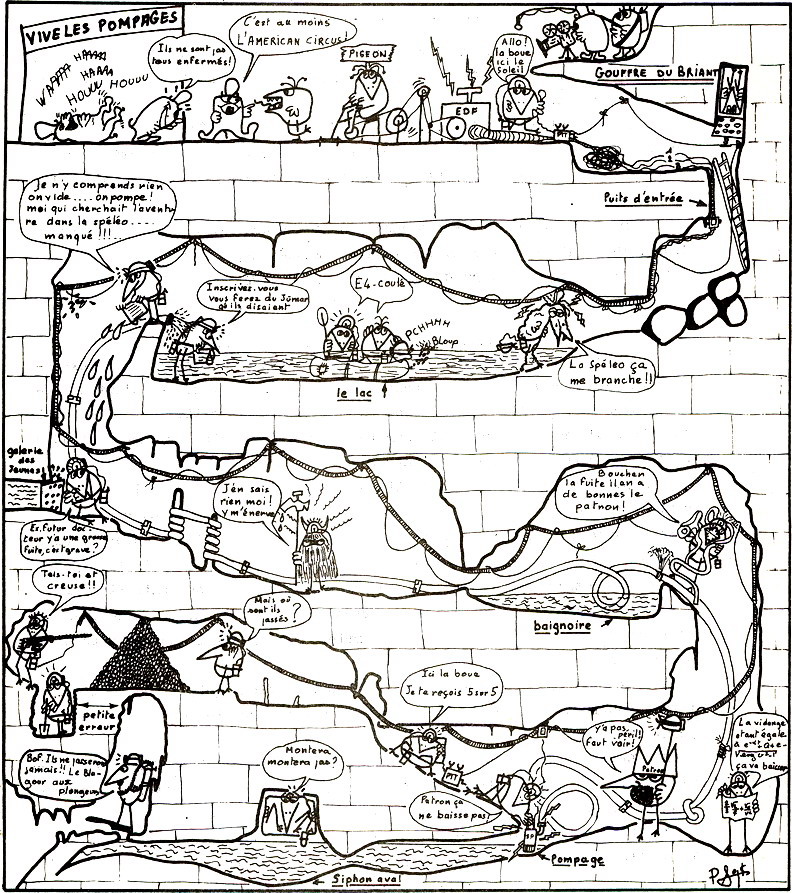 VIVE LES POMPAGES
WAAAA HAAAA
HAAA
HOUUU HOUUU
Ils ne sont pas
tous enfermés!
C'est au moins
L'AMERICAN CIRCUS!
PIGEON
EDF
Allo!
la boue
ici le
soleil
PTT
GOUFFRE DU BRIANT
Puits d'entrée
Je n'y comprends rien
on vide.....on pompe!
moi qui cherchait l'aventu
re dans la spéléo....
manqué !!!!
Inscrivez-vous
vous ferez du Jümar
qu'ils disaient
E4-coulé
PCHHHH
BLOUP
La Spéléo ça
me branche!!
le lac
galerie
des
Jaunes
Es. futur doc-
teur y'a une grosse
fuite, c'est grave?
J'en sais
rien moi!
y m'énerve
Bouchez
la fuite il en a
de bonnes le
patron!
baignoire
Tais-toi et
creuse!!
Mais où
sont ils
passés?
petite
erreur
Ici la boue
Je te reçois 5 sur 5
PTT
Bof. Ils ne passeront
jamais!! Le Bla-
gour aux
plongeurs
Montera,
montera pas?
Patron ça
ne baisse pas!
y'a pas
péril!
faut voir!
Patron
La vidange
étant égale
ça va baisser
Pompage
Siphon aval